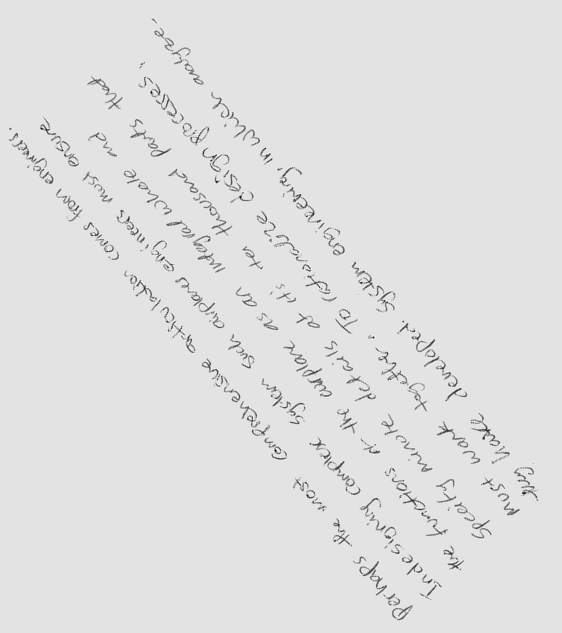 Perhaps the most comprehensive articulation comes from engineers.
In designing complex system such airplanes engineers must ensure
the functions of the airplane as an integral whole and
specify minute details at it's ten thousand parts that
must work together. To rationalize design processes,
they have developed system engineering, in which analyze.